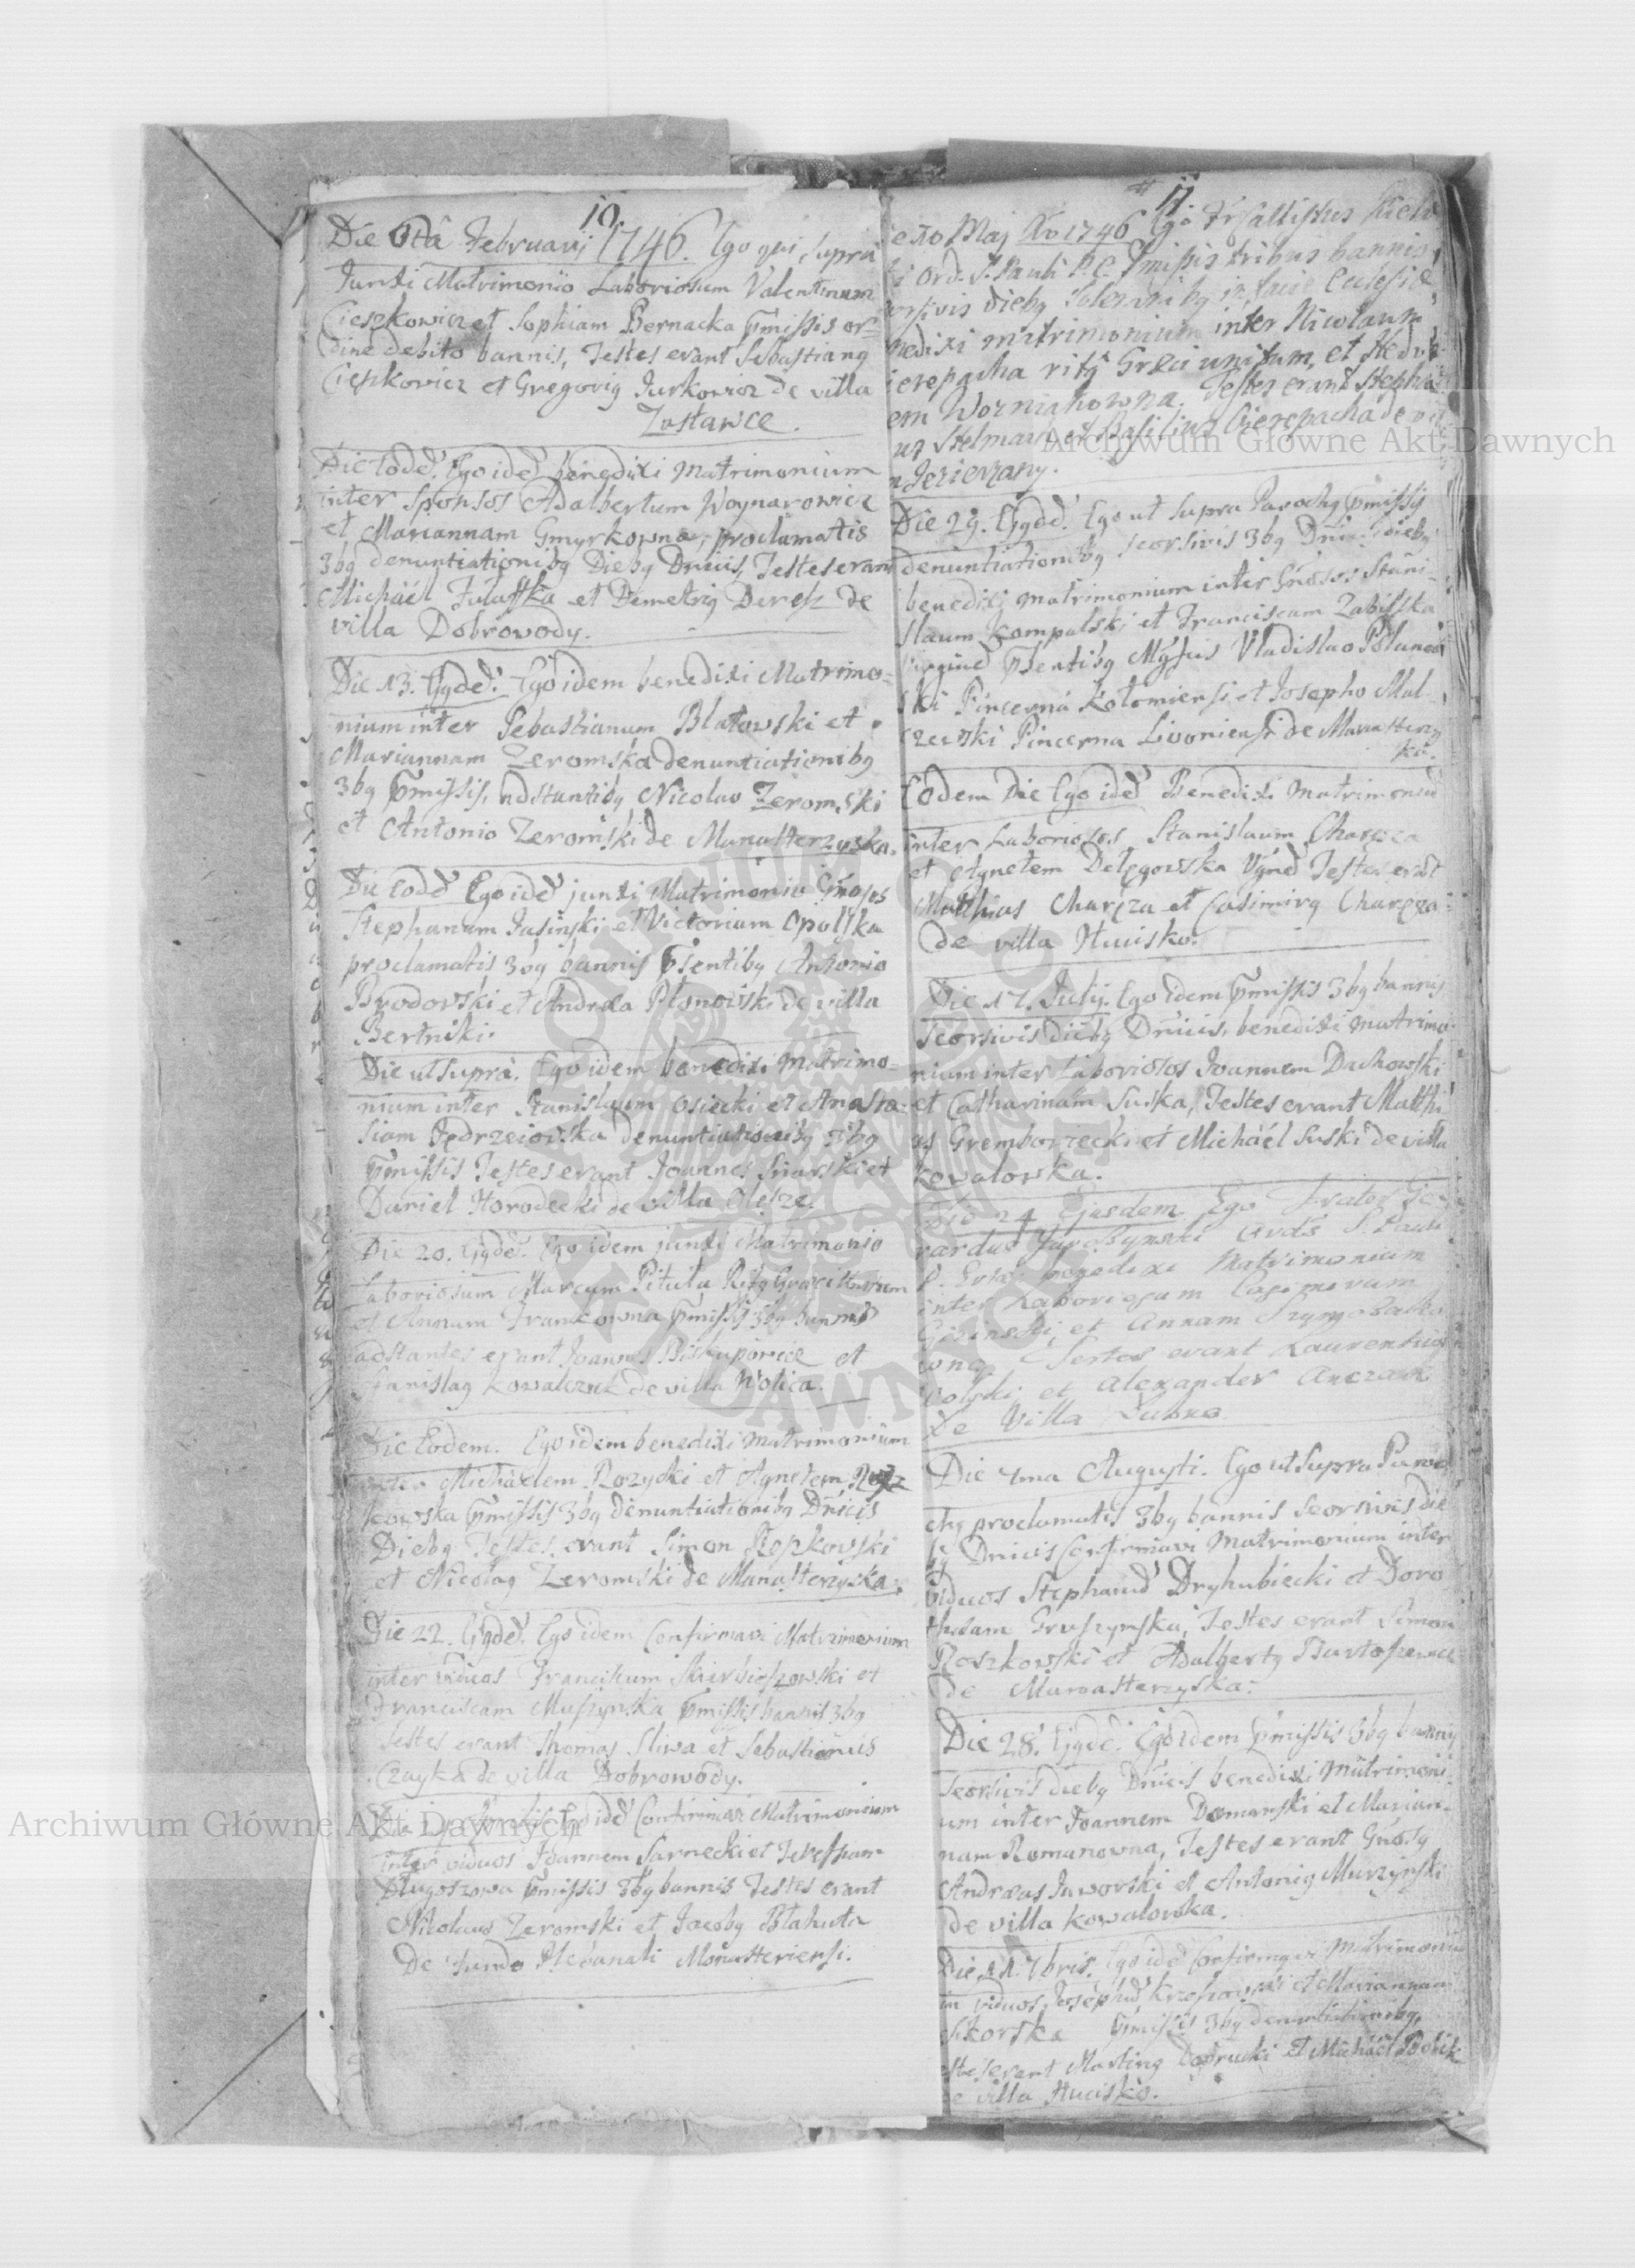 10.
Die 6tâ Februarij 1746. Ego qui supra
Junxi Matrimonio Laboriosum Valentinum
Cieszkowicz et Sophiam Bernacka pmissis or-
dine debito bannis, Testes erant Sebastiang
Cieszkowicz et Gregorig Jurkowicz de villa
Zastawce.
Die Eodē. Ego idē benedixi Matrimonium
inter Sponsos Adalbertum Woynarowicz
et Mariannam Gmyrkowna, proclamatis
3bg denuntiationibg Diebg Dnicis, Testes erant
Michäel Fuluszka et Demetrig Deresz de
villa Dobrovody.
Die 13. Ejgdē. Ego idem benedixi Matrimo-
nium inter Sebastianum Blatowski et
Mariannam Zeromska denuntiationibg
3bg pmissis, adstantibg Nicolao Zeromski
et Antonio Zeromski de Manasterzyska.
Die Eodē Ego idē junxi Matrimonio Gnosos
Stephanum Jasinski et Victoriam Opolska
proclamatis 3bg bannis psentibg Antonio
Brodovski et Andræa Plonowski de villa
Bertniki.
Die ut supra. Ego idem benedixi Matrimo-
nium inter Stanislaum Osiecki et Anasta-
siam Jędrzeiowska denuntiationibg 3bg
pmissis Testes erant Joannes Snarski et
Daniel Horodecki de villa Olesze.
Die 20. Ejgdē. Ego idem junxi Matrimonio
Laboriosum Marcum Pitula Ritg Græci
et Annam Frankowna pmissis 3bg bannis
adstantes erant Joannes Biskupowicz et
Stanislag Kowalczuk de villa Wolica.
Die Eodem. Ego idem benedixi Matrimonium
inter Michaelem Rozycki et Agnetem
kowska pmissis 3bg denuntiationibg Dnicis
Diebg Testes erant Simon Roszkowski
et Nicolag Zeromski de Manasterzyska.
Die 22. Ejgdē. Ego idem Confirmavi Matrimonium
inter viduos Franciscum Skierbieszowski et
Franciscam Muszynska pmissis bannis 3bg
Testes erant Thomas Sliwa et Sebastianus
Czayka de villa Dobrowody.
Ego idē Confirmavi Matrimonium
inter viduos Joannem Sarnecki et Teressiam
Długoszowa pmissis 3bg bannis Testes erant
Nicolaus Zeromski et Jacobg Blahuta
De fundo Plebanali Monasteriensi.
11.
Maj Ao 1746 Ego Fr Callistus
Ord. S. Pauli P. E. pmissis tribus bannis
diebg Solennibg in facie Ecclesiæ
nedixi matrimonium inter Nicolaum
ierepacha ritg Græci unitum, et Hedvi
em Wozniakowna. Testes erant Stepha
ug Stelmach et Basilius Cierepacha de vil
a Jezierzany.
Die 29. Ejgdē. Ego ut supra Parochg pmissis
denuntiationibg seorsivis 3bg Dnicis diebg
benedixi matrimonium inter Gnosos Stani-
slaum Kompalski et Franciscam Zabisska
Virginē psentibg Mgfcis Vladislao
ski Pincerna Kolomiensi et Josepho Mal-
czewski Pincerna Livoniensi de Manasterzy
ka.
Eodem Die Ego idē Benedixi Matrimoniū
inter Laboriosos Stanislaum Charęza
et Agnetem Delęgowska Vgnē Testes erāt
Matthias Charęza et Casimirg Charęza
de villa Huuisko.
Die 17. Julij. Ego idem pmissis 3bg bannis
seorsivis diebg Dnicis, benedixi matrimo-
nium inter Laboriosos Joannem Dachowski
et Catharinam Suska, Testes erant Matthi
as Gremboriecki et Michäel Suski de villa
Kowalowka.
Die 24 Ejusdem Ego Frater Ge-
rardus Ordis S. Pauli
P. Er. benedixi Matrimonium
inter Laboriosum Casimirum
et Annam
Testes erant Laurentius
Wolski et Alexander
de Villa
Die 7ma Augusti. Ego ut supra Paro-
chg proclamatis 3bg bannis seorsivis die
bg Dnicis Confirmavi Matrimonium inter
viduos Stephanū Dryhubiecki et Doro
theam Gruszynska, Testes erant Simon
Roszkowski et Adalbertg Bartoszewicz
de Manasterzyska.
Die 28. Ejgdē. Ego idem pmissis 3bg bannis
seorsivis diebg Dnicis benedixi Matrimoni-
um inter Joannem Domanski et Marian-
nam Romanowna, Testes erant Gnosg
Andræas Jaworski et Antonig Murzynski
de villa Kowalowka.
Die 11. 7bris. Ego idē Confirmavi Matrimoniū
in viduos Josephū et Mariannam
Sikorska pmissis 3bg denuntiationibg,
estes erant Marting et Michäel
e villa Huciskô.
Archiwum Główne Akt Dawnych
Archiwum Główne Akt Dawnych